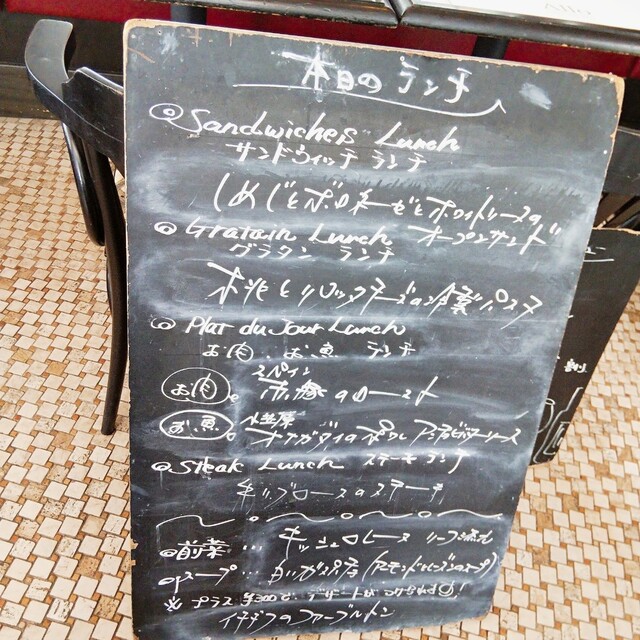 本日のランチ
◎Sandwiches Lunch
サンドウィッチ ランチ
しめじとボロネーゼとホワイトソースの
オープンサンド
◎Gratain Lunch
グラタン ランチ
木兆とリコッタチーズの パスタ
◎Plat du Jour Lunch
お肉、お魚 ランチ
お肉。スペイン のロースト
お魚。小笠原 オナガダイのポワレ ソース
◎Steak Lunch ステーキランチ
牛リブロースのステーキ
◎前菜... キッシュロレーヌ リーフ添え
◎スープ... 白いガスパチョ(アーモンドとレーズンのスープ)
※プラス¥300で、デザートがつけられます!
イチヂクのファーブルトン